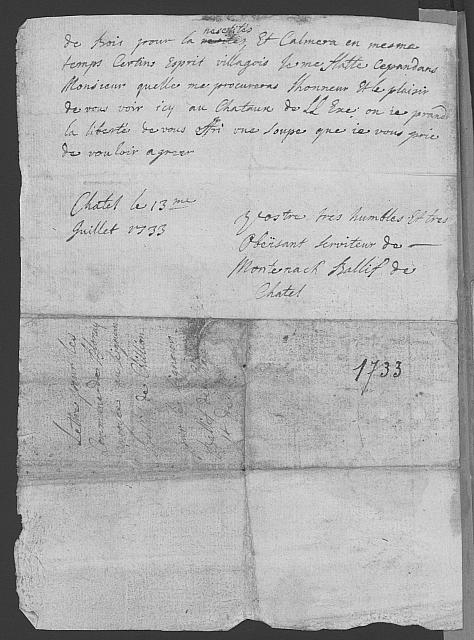 nesesitéz
de Bois pour la Et Calmera en mesme
temps Certins Esprit villagois Je me flatte Cependans
Monsieur quelle me procureras Lhonneur Et le plaisir
de vous voir icy au Chataux de LL Exe: ou ie prandz
la liberté de vous offri vne Soupe que ie vous prie
de vouloir agreer
Chatel le 13me
Juillet 1733
Vostre tres humbles Et tres
Obeisant Serviteur de
Montenach Ballif de
Chatel
1733
Lettre pour les
de